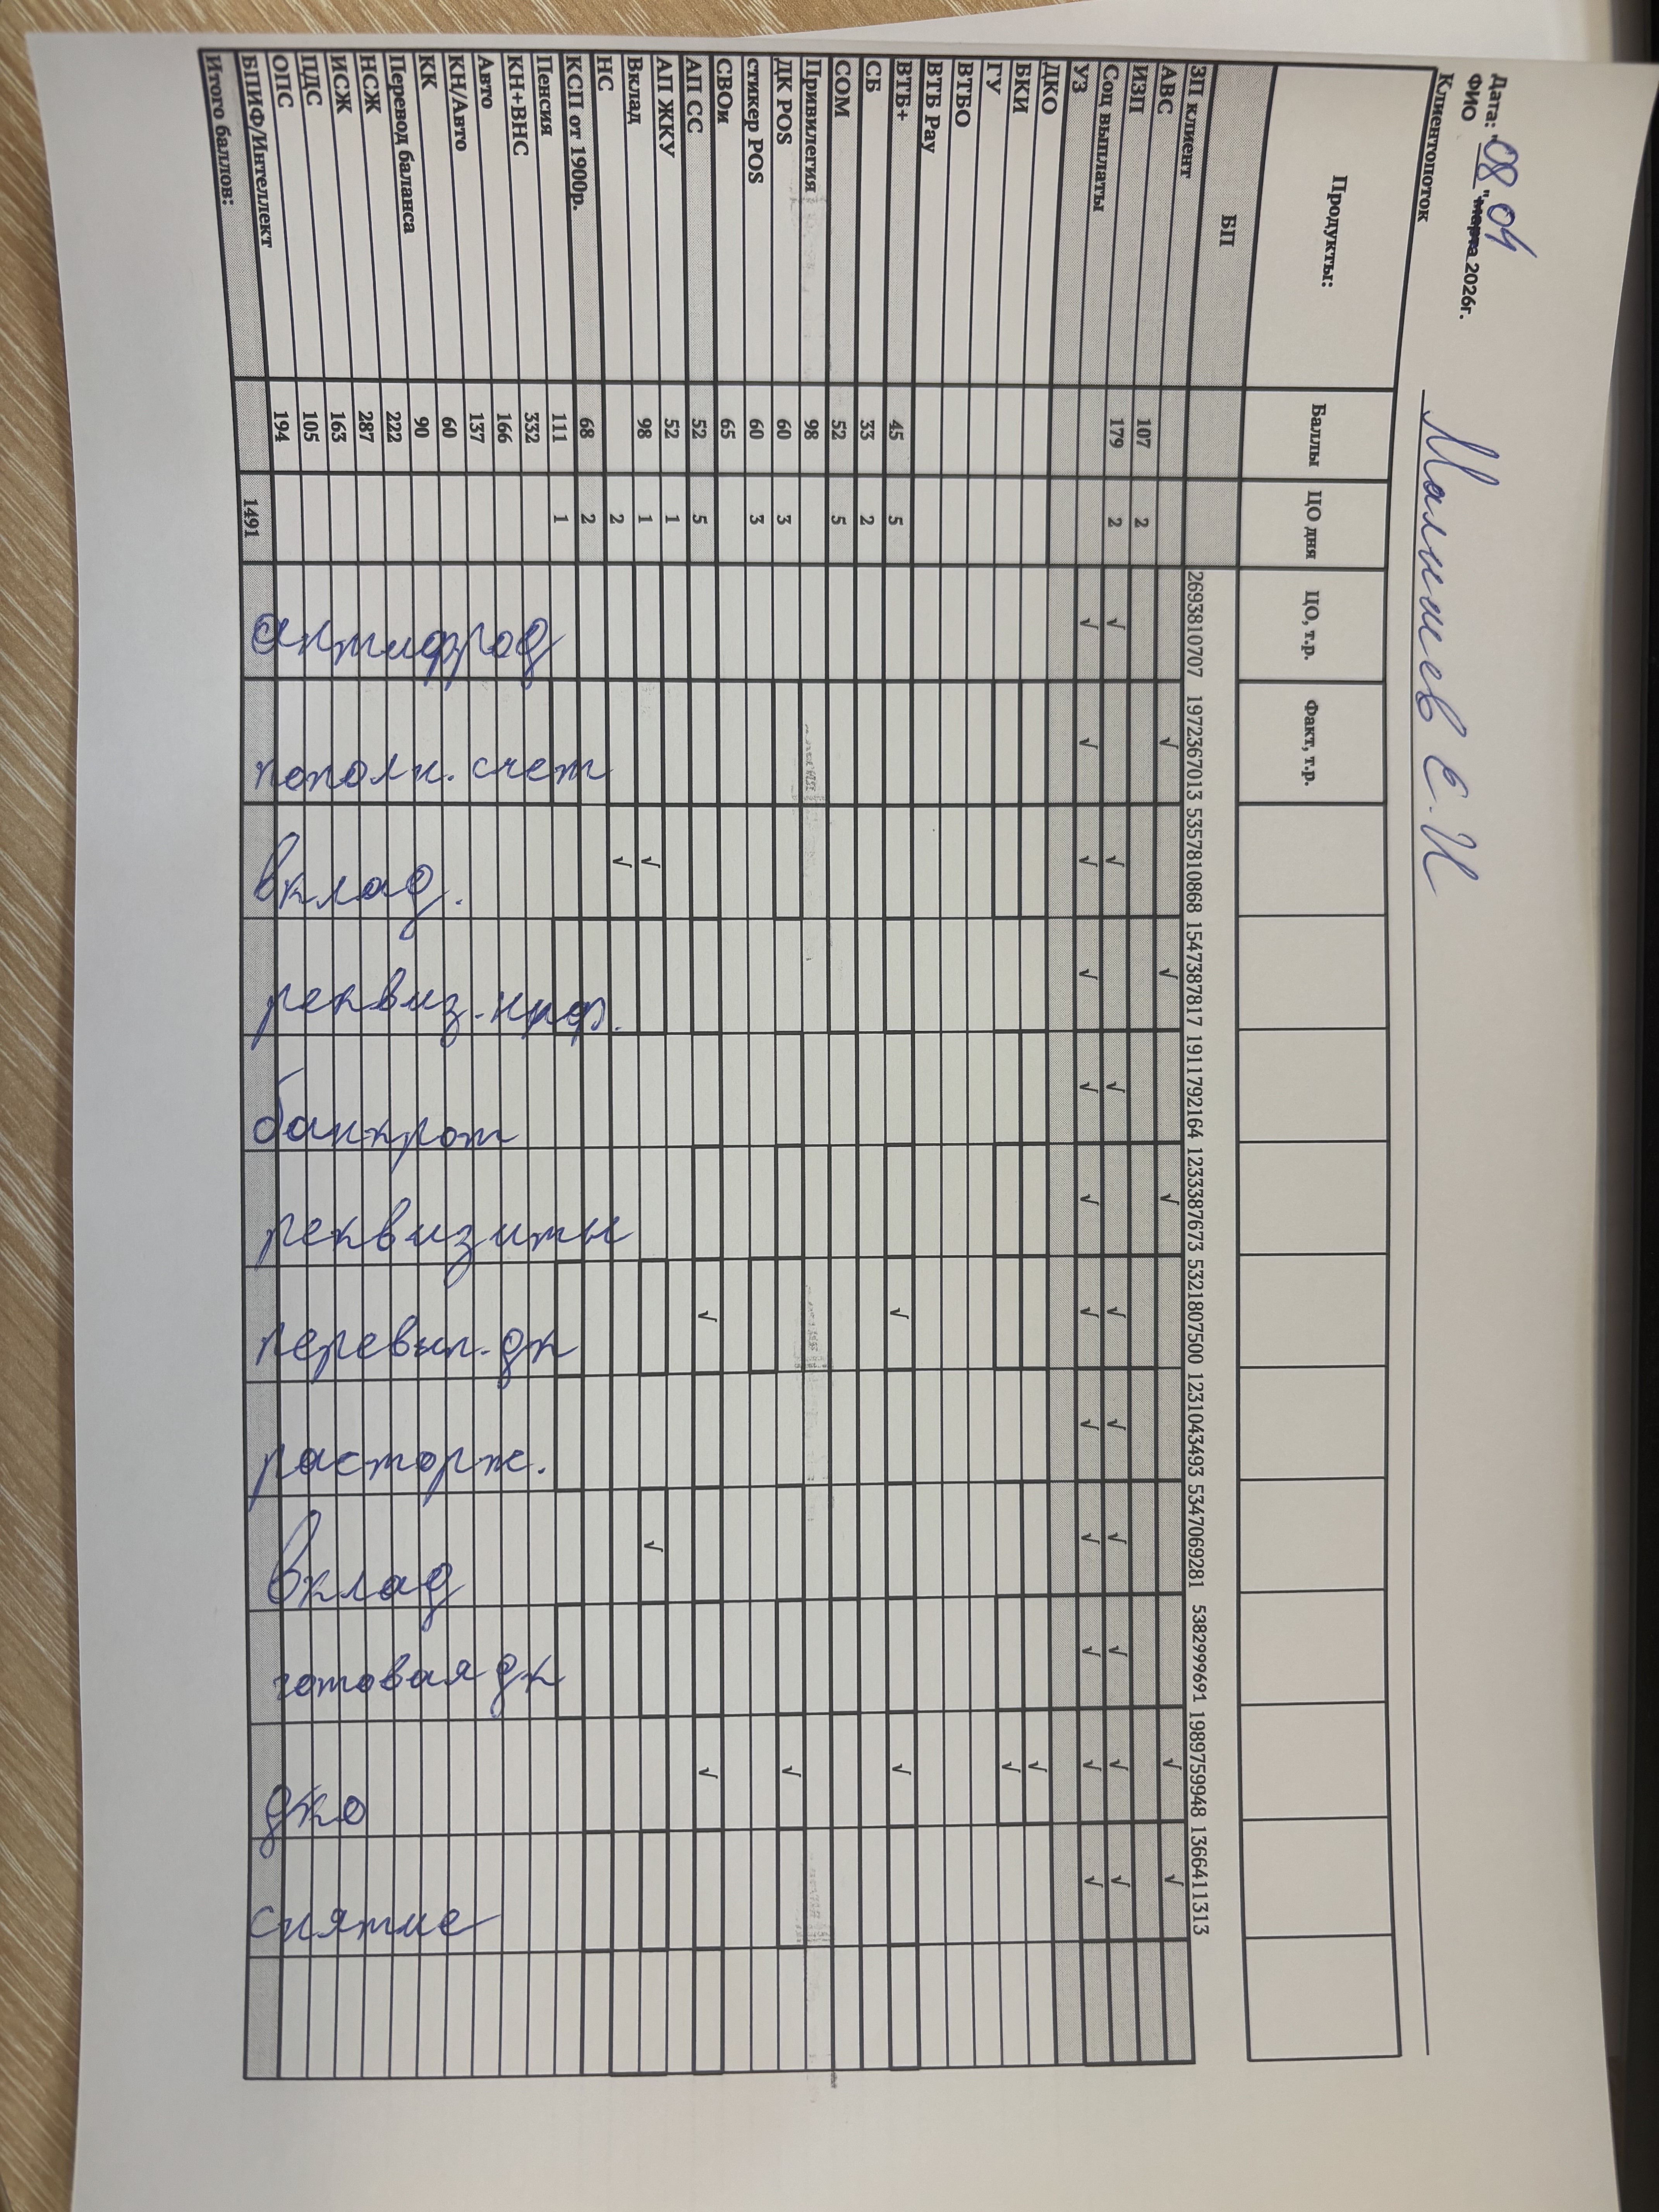 Дата: "08" 04 марта 2026г.
ФИО Малышев Е. И
Клиентопоток
Продукты: Баллы ЦО дня ЦО, т.р. Факт, т.р.
БП
ЗП клиент 2693810707 1972367013 5357810868 1547387817 1911792164 1233387673 5321807500 1231043493 5347069281 5382999691 1989759948 1366411313
АВС √ √ √ √ √
ИЗП 107 2
Соц выплаты 179 2 √ √ √ √ √ √ √ √ √
УЗ √ √ √ √ √ √ √ √ √ √ √ √
ДКО √
БКИ √
ГУ
ВТБО
ВТБ Pay
ВТБ+ 45 5 √ √
СБ 33 2
СОМ 52 5
Привилегия 98
ДК POS 60 3 √
стикер POS 60 3
СВОи 65
АП СС 52 5 √ √
АП ЖКУ 52 1
Вклад 98 1 √ √
НС 2 √
КСП от 1900р. 68 2
Пенсия 111 1
КН+ВНС 332
Авто 166
КН/Авто 137
КК 60
Перевод баланса 90
НСЖ 222
ИСЖ 287
ПДС 163
ОПС 105
БПИФ/Интеллект 194
Итого баллов: 1491
антифрод пополн. счет вклад. реквиз. банкрот реквизиты перевып. дк расторж. вклад готовая дк дко снятие